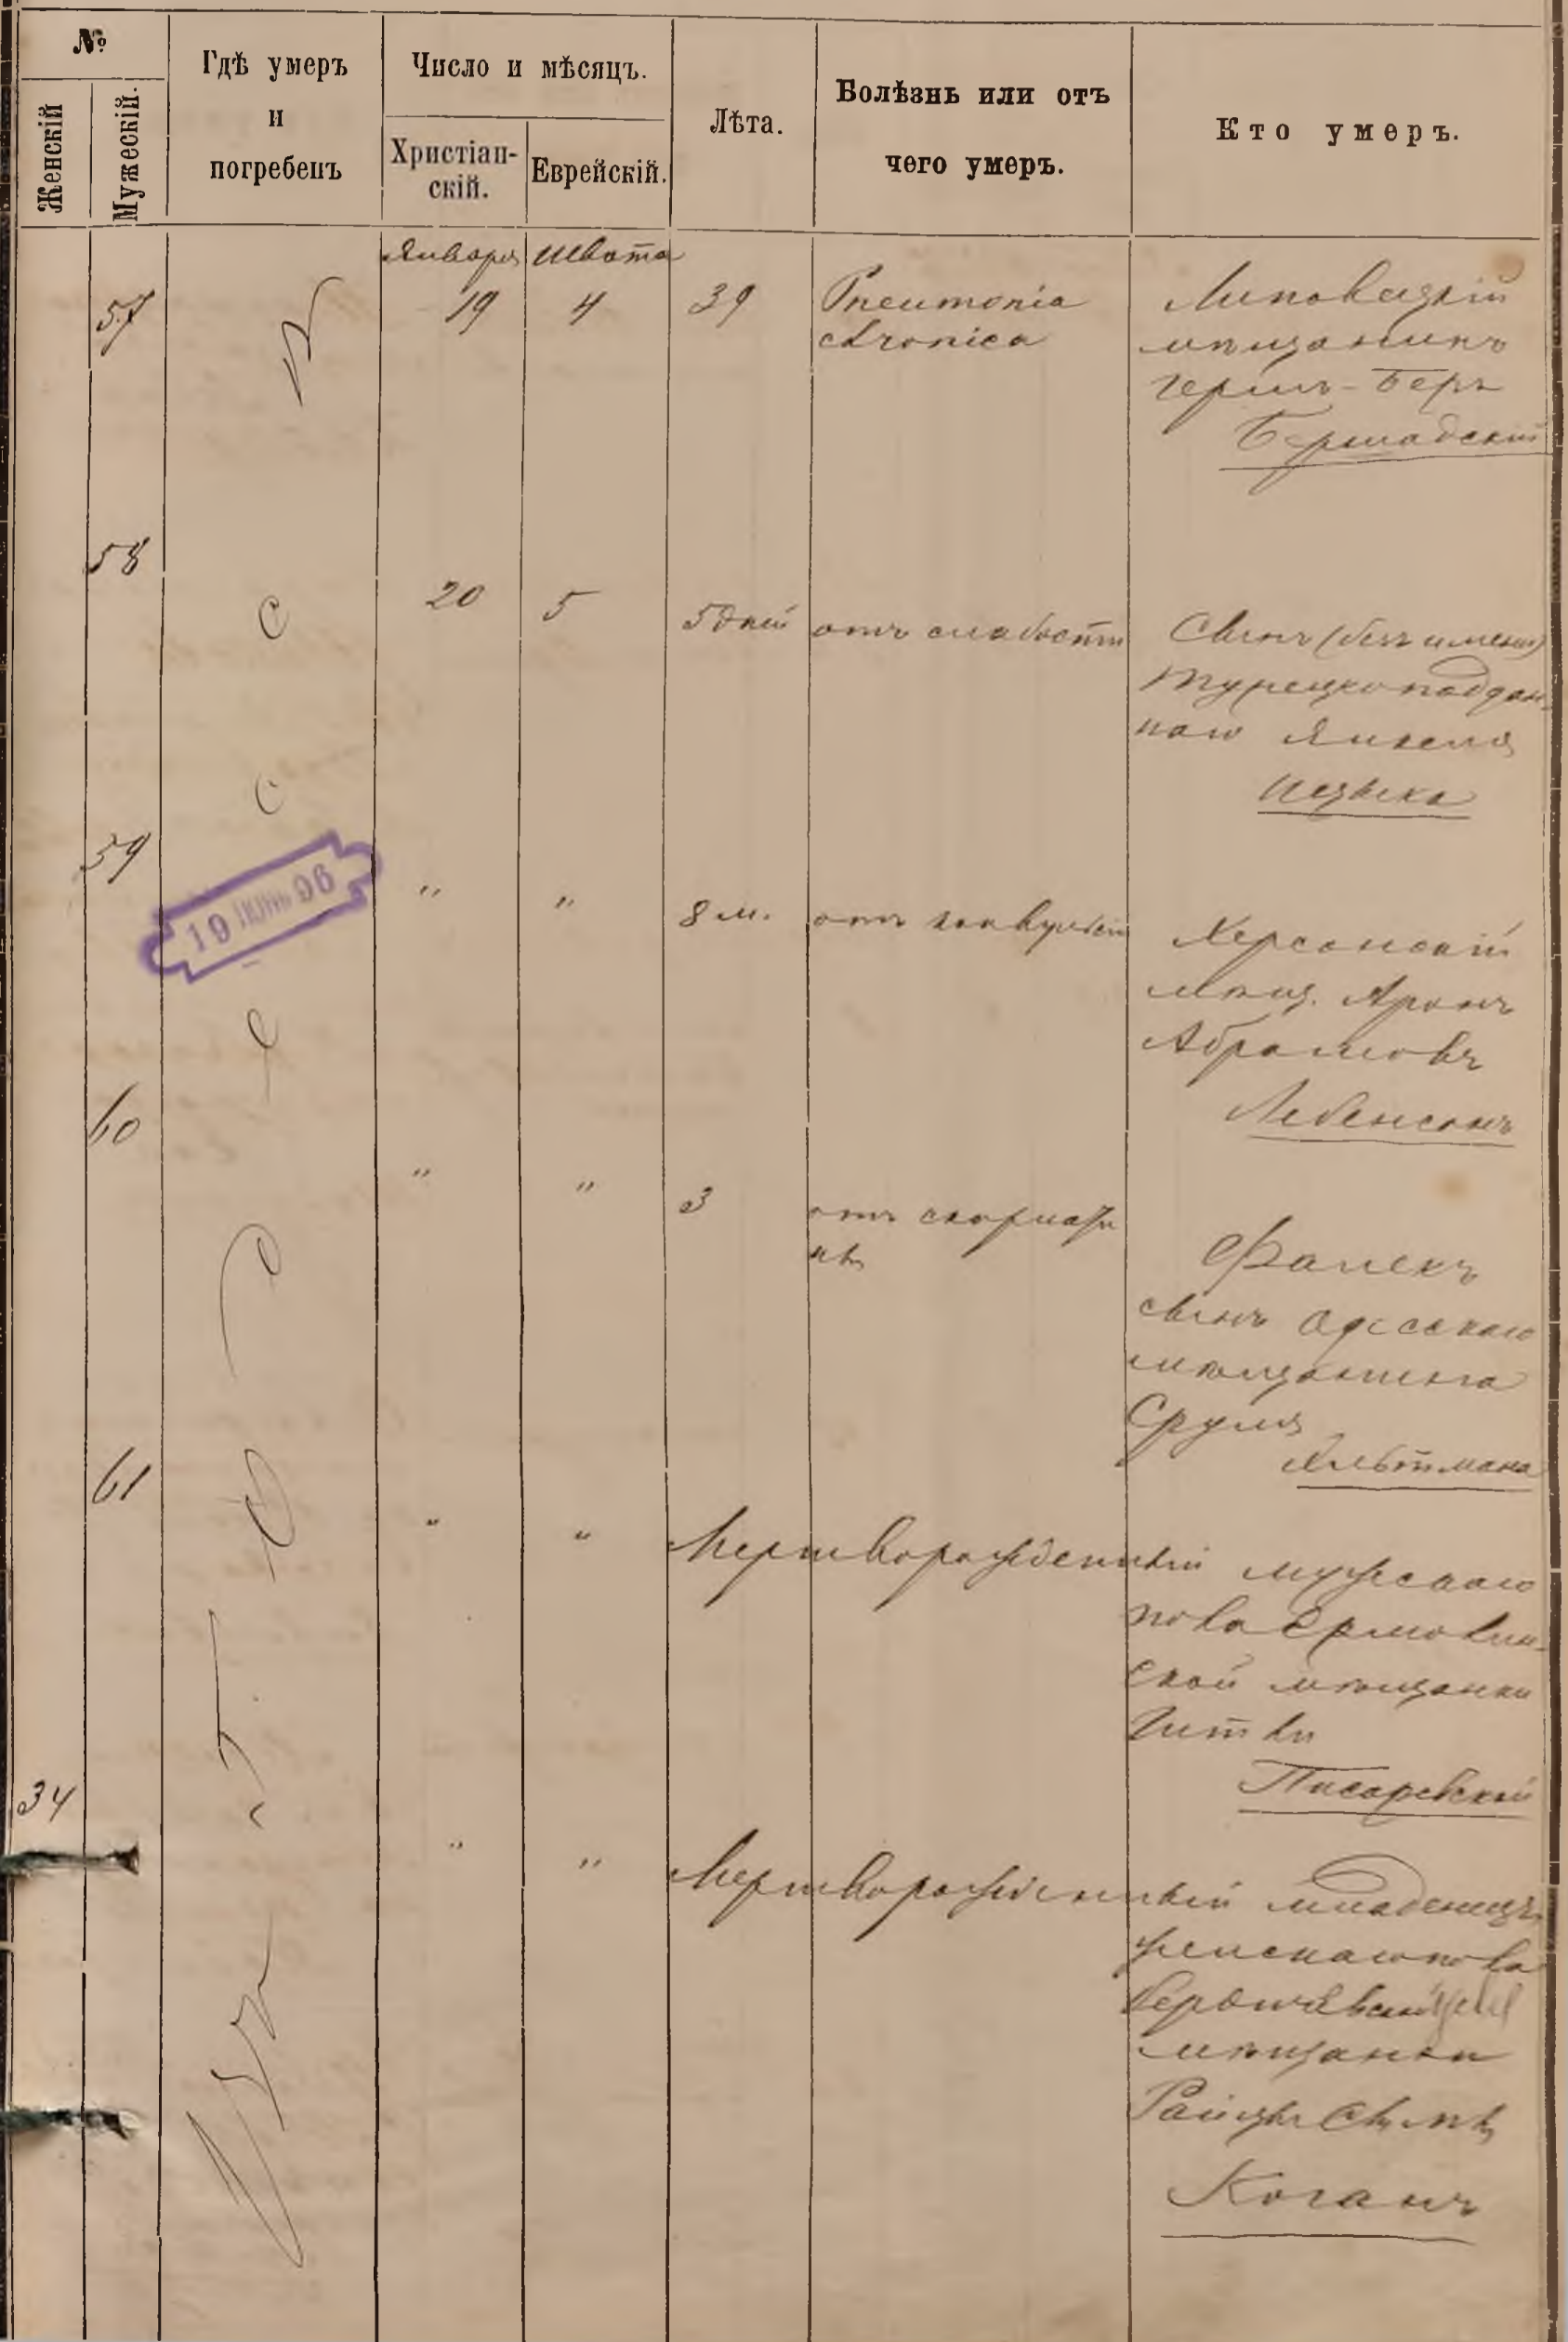 №
Женскій
Мужескій.
Гдѣ умеръ
и
погребенъ
Число и мѣсяцъ.
Христіан-
скій.
Еврейскій.
Лѣта.
Болѣзнь или отъ
чего умеръ.
Кто умеръ.
Января Швата
57 19 4 39 Pneumonia
chronica
Липовецкій
мѣщанинъ
Гершъ-Беръ
Бершадскій
58 20 5 5 дней отъ слабости
Сынъ (безъ имени)
турецко-поддан-
наго Янкеля
Ицзика
59 " " 8 м. отъ конвульсій
19 ІЮНЬ 96
Херсонскій
мѣщ. Аронъ
Абрамовъ
Лебенсонъ
60 " " 3 отъ скорлати
нѣ
Фалекъ
сынъ Одесскаго
мѣщанина
Сруля
Альтмана
61 " " Мертворожденный мужескаго
пола
ской мѣщанки
Гитли
Писаревской
34 " " Мертворожденный младенецъ
женскаго пола
мѣщанки
Коганъ